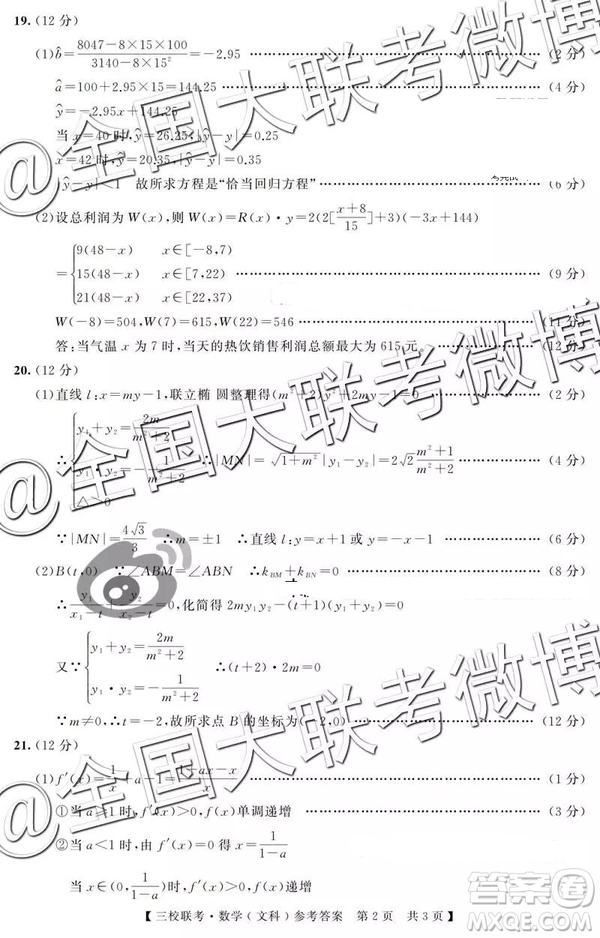 19.(12 分)
(1)b̂=(8047-8×15×100)/(3140-8×15²)=-2.95 ……(2 分)
â=100+2.95×15=144.25 ……(4 分)
ŷ=-2.95x+144.25
当 x=40 时,ŷ=26.25,|ŷ-y|=0.25
x=42 时,ŷ=20.35,|ŷ-y|=0.35
|ŷ-y|<1 故所求方程是“恰当回归方程”……(6 分)
(2)设总利润为 W(x),则 W(x)=R(x)·y=2(2[(x+8)/15]+3)(-3x+144)
={9(48-x) x∈[-8,7)
15(48-x) x∈[7,22) ……(9 分)
21(48-x) x∈[22,37)
W(-8)=504,W(7)=615,W(22)=546 ……(11 分)
答:当气温 x 为 7 时,当天的热饮销售利润总额最大为 615 元。……(12 分)
20.(12 分)
(1)直线 l:x=my-1,联立椭圆整理得(m²+2)y²+2my-1=0
∴{y₁+y₂=2m/(m²+2)
∴|MN|=√(1+m²)|y₁-y₂|=2√2 (m²+1)/(m²+2) ……(4 分)
△>0
∵|MN|=4√3/3 ∴m=±1 ∴直线 l:y=x+1 或 y=-x-1 ……(6 分)
(2)B(t,0) ∵∠ABM=∠ABN ∴k_BM+k_BN=0 ……(8 分)
∴y₁/(x₁-t)+y₂/(x₂-t)=0,化简得 2my₁y₂-(t+1)(y₁+y₂)=0
又∵{y₁+y₂=2m/(m²+2)
∴(t+2)·2m=0
y₁·y₂=-1/(m²+2)
∵m≠0,∴t=-2,故所求点 B 的坐标为(-2,0) ……(12 分)
21.(12 分)
(1)f′(x)=1/x+a-1=(1+ax-x)/x ……(1 分)
①当 a≥1 时,f′(x)>0,f(x)单调递增 ……(3 分)
②当 a<1 时,由 f′(x)=0 得 x=1/(1-a)
当 x∈(0,1/(1-a))时,f′(x)>0,f(x)递增
【三校联考·数学(文科)参考答案 第 2 页 共 3 页】
@全国大联考微博
@全国大联考微博
@全国大联考微博
答案卷